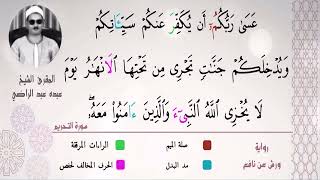 عَسَىٰ رَبُّكُمُۥٓ أَن يُكَفِّرَ عَنكُمْ سَيِّـَٔاتِكُمْ
وَيُدْخِلَكُمْ جَنَّٰتٍ تَجْرِى مِن تَحْتِهَا ٱلَانْهَٰرُ يَوْمَ
لَا يُخْزِى ٱللَّهُ ٱلنَّبِىٓءَ وَٱلَّذِينَ ءَامَنُواْ مَعَهُۥ
المقرئ الشيخ
عبده عبد الراضي
سورة التحريم
رواية
ورش عن نافع
صلة الميم
الراءات المرققة
مد البدل
الحرف المخالف لحفص